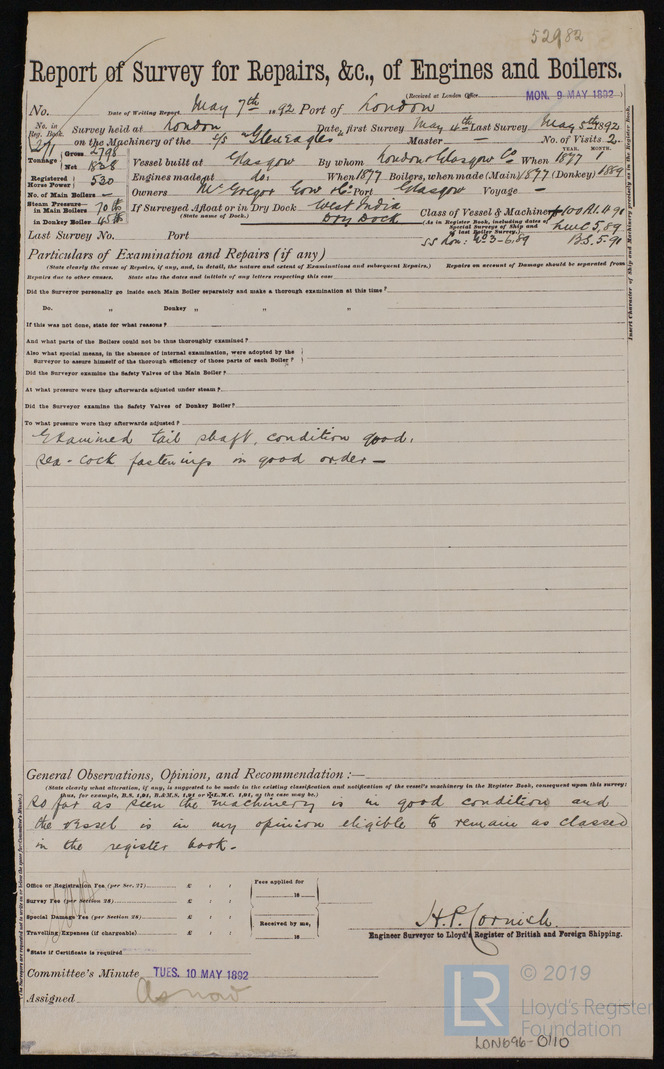 52982
Report of Survey for Repairs, &c., of Engines and Boilers.
(Received at London Office MON. 9 MAY 1892)
No. Date of Writing Report May 7th 1892 Port of London
No. in Reg. Book. Survey held at London Date, first Survey May 4th Last Survey May 5th 1892
271 on the Machinery of the s/s "Gleneagles" Master — No. of Visits 2
Tonnage Gross 2798 Net 1828
Vessel built at Glasgow By whom London & Glasgow Co When YEAR. 1877 MONTH. 1
Registered Horse Power 530
Engines made at do: When 1877 Boilers, when made (Main) 1877 (Donkey) 1889
No. of Main Boilers —
Owners McGregor Gow & Co Port Glasgow Voyage —
Steam Pressure in Main Boilers 70 lb
in Donkey Boiler 45 lb
If Surveyed Afloat or in Dry Dock West India
(State name of Dock.) Dry Dock
Class of Vessel & Machinery 100A1. 4.91
(As in Register Book, including dates of Special Surveys of Ship and of last Boiler Survey.) LMC 5,89
SS Lon: No 3-6,89 B.S. 5.91
Last Survey No. Port
Particulars of Examination and Repairs (if any)
(State clearly the cause of Repairs, if any, and, in detail, the nature and extent of Examinations and subsequent Repairs.) Repairs on account of Damage should be separated from
Repairs due to other causes. State also the dates and initials of any letters respecting this case
Did the Surveyor personally go inside each Main Boiler separately and make a thorough examination at this time?
Do. " Donkey " " "
If this was not done, state for what reasons?
And what parts of the Boilers could not be thus thoroughly examined?
Also what special means, in the absence of internal examination, were adopted by the
Surveyor to assure himself of the thorough efficiency of those parts of each Boiler?
Did the Surveyor examine the Safety Valves of the Main Boiler?
At what pressure were they afterwards adjusted under steam?
Did the Surveyor examine the Safety Valves of Donkey Boiler?
To what pressure were they afterwards adjusted?
Examined tail shaft, condition good.
Sea-cock fastenings in good order —
General Observations, Opinion, and Recommendation :—
(State clearly what alteration, if any, is suggested to be made in the existing classification and notification of the vessel's machinery in the Register Book, consequent upon this survey;
thus, for example, B.S. 1,91, B.&M.S. 1,91 or ✠L.M.C. 1,91, as the case may be.)
So far as seen the machinery is in good condition and
the vessel is in my opinion eligible to remain as classed
in the register book.
Office or Registration Fee (per Sec. 27) £ : :
Survey Fee (per Section 28) £ : :
Special Damage Fee (per Section 28) £ : :
Travelling Expenses (if chargeable) £ : :
Fees applied for
18
Received by me,
18
H.P. Cornish.
Engineer Surveyor to Lloyd's Register of British and Foreign Shipping.
*State if Certificate is required
Committee's Minute TUES. 10 MAY 1892
Assigned As now
Insert Character of Ship and Machinery precisely as in the Register Book.
LR © 2019
Lloyd's Register
Foundation
LON696-0110